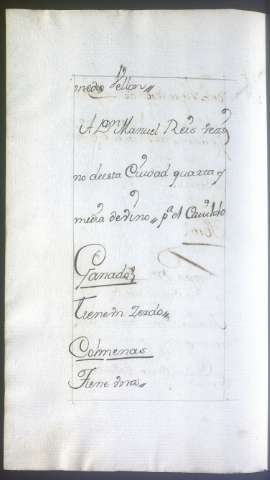 medio Vellon
A Dn Manuel Reis vezi
no de esta Ciudad quarta y
media de vino pa el Cavildo
Ganados
Tiene un Zerdo
Colmenas
Tiene dos